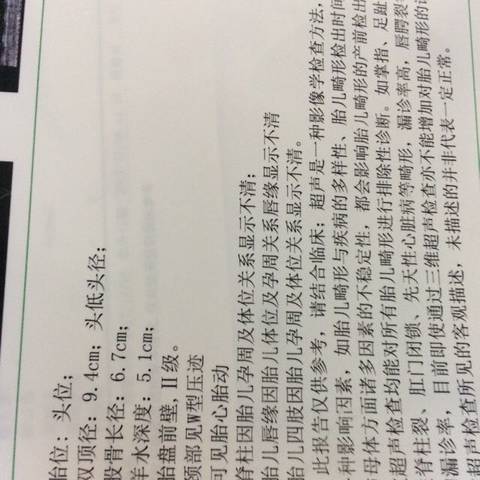 胎位：头位；
双顶径：9.4cm；头低头径；
股骨长径：6.7cm；
羊水深度：5.1cm；
胎盘前壁，Ⅱ级。
颈部见W型压迹
可见胎心胎动
脊柱因胎儿孕周及体位关系显示不清；
胎儿唇缘因胎儿体位及孕周关系唇缘显示不清
胎儿四肢因胎儿孕周及体位关系显示不清。
此报告仅供参考，请结合临床；超声是一种影像学检查方法，
种影响因素，如胎儿畸形与疾病的多样性、胎儿畸形检出时间
母体方面诸多因素的不稳定性，都会影响胎儿畸形的产前检出
超声检查均能对所有胎儿畸形进行排除性诊断。如掌指、足趾
脊柱裂、肛门闭锁、先天性心脏病等畸形，漏诊率高，唇腭裂
漏诊率，目前即使通过三维超声检查亦不能增加对胎儿畸形的
超声检查所见的客观描述，未描述的并非代表一定正常。